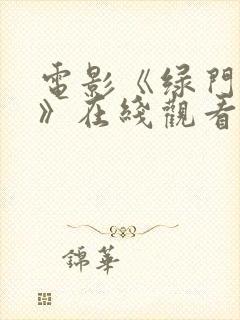 電影《绿門
》在綫觀看
錦華